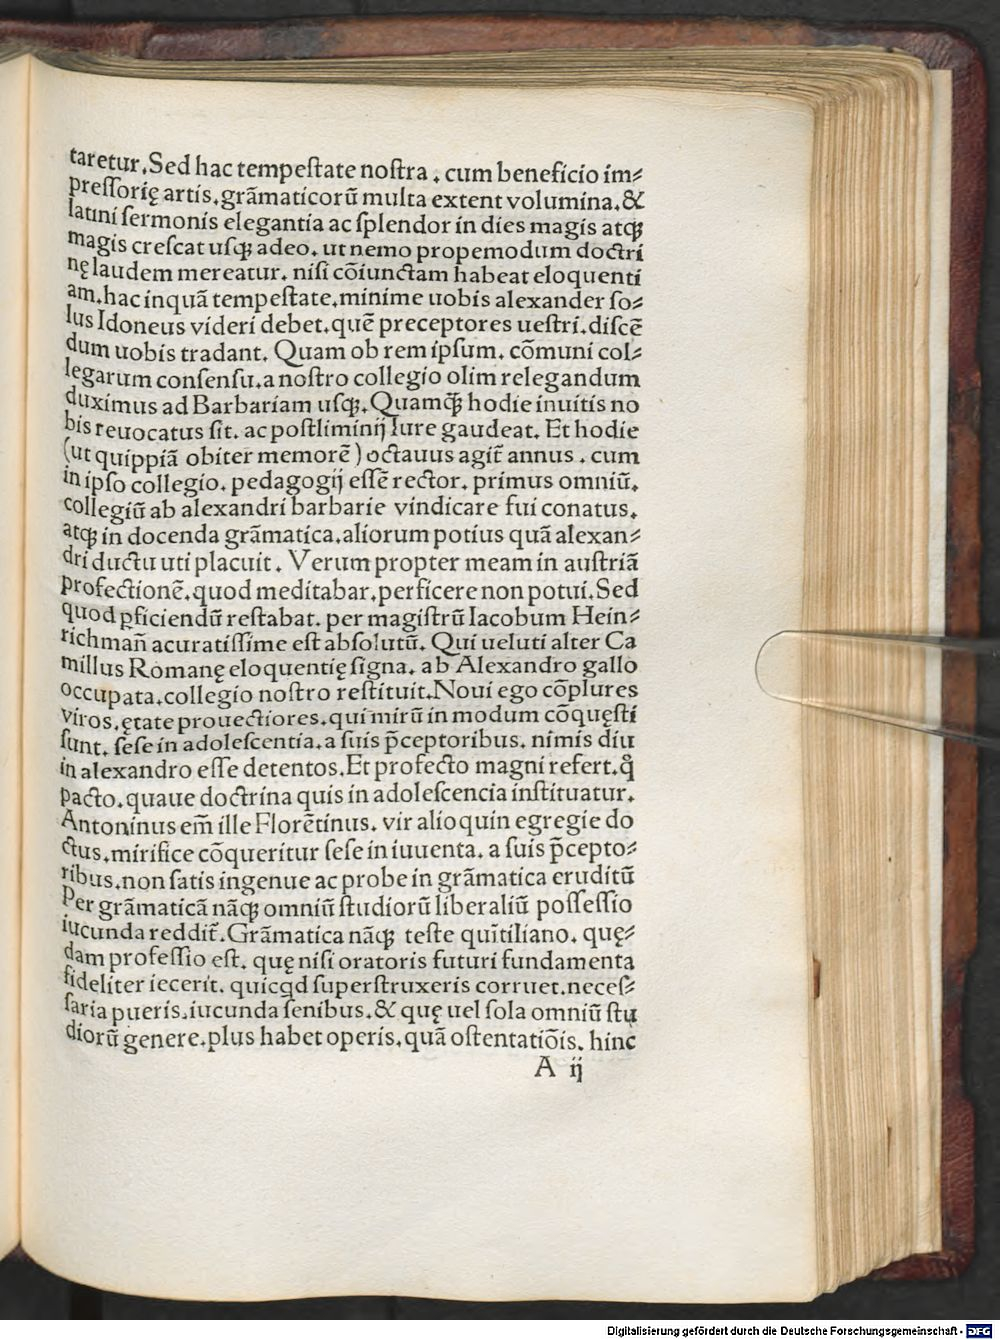 taretur. Sed hac tempeſtate noſtra . cum beneficio im⸗
preſſorię artis. grãmaticorũ multa extent volumina. &
latini ſermonis elegantia ac ſplendor in dies magis atqꝫ
magis creſcat uſqꝫ adeo. ut nemo propemodum doctri
nę laudem mereatur. niſi cõiunctam habeat eloquenti
am. hac inquã tempeſtate. minime uobis alexander ſo⸗
lus Idoneus videri debet. quẽ preceptores ueſtri. diſcẽ
dum uobis tradant. Quam ob rem ipſum. cõmuni col⸗
legarum conſenſu. a noſtro collegio olim relegandum
duximus ad Barbariam uſqꝫ. Quamqꝫ̃ hodie inuitis no
bis reuocatus ſit. ac poſtliminij Iure gaudeat. Et hodie
(ut quippiã obiter memorẽ) octauus agit̃ annus . cum
in ipſo collegio. pedagogij eſſẽ rector. primus omniũ.
collegiũ ab alexandri barbarie vindicare fui conatus.
atqꝫ in docenda grãmatica. aliorum potius quã alexan⸗
dri ductu uti placuit. Verum propter meam in auſtriã
profectionẽ. quod meditabar. perficere non potui. Sed
quod ꝑficiendũ reſtabat. per magiſtrũ Iacobum Hein⸗
richmañ acuratiſſime eſt abſolutũ. Qui ueluti alter Ca
millus Romanę eloquentię ſigna. ab Alexandro gallo
occupata. collegio noſtro reſtituit. Noui ego cõplures
viros. ętate prouectiores. qui mirũ in modum cõquęſti
ſunt. ſeſe in adoleſcentia. a ſuis p̃ceptoribus. nimis diu
in alexandro eſſe detentos. Et profecto magni refert. q̊
pacto. quaue doctrina quis in adoleſcencia inſtituatur.
Antoninus em̃ ille Florẽtinus. vir alioquin egregie do
ctus. mirifice cõqueritur ſeſe in iuuenta. a ſuis p̃cepto⸗
ribus. non ſatis ingenue ac probe in grãmatica eruditũ
Per grãmaticã nãqꝫ omniũ ſtudiorũ liberaliũ poſſeſſio
iucunda reddit̃. Grãmatica nãqꝫ teſte quĩtiliano. quę⸗
dam profeſſio eſt. quę niſi oratoris futuri fundamenta
fideliter iecerit. quicqd ſuperſtruxeris corruet. neceſ⸗
ſaria pueris. iucunda ſenibus. & quę uel ſola omniũ ſtu
diorũ genere. plus habet operis. quã oſtentatiõis. hinc
A ij
Digitalisierung gefördert durch die Deutsche Forschungsgemeinschaft - DFG